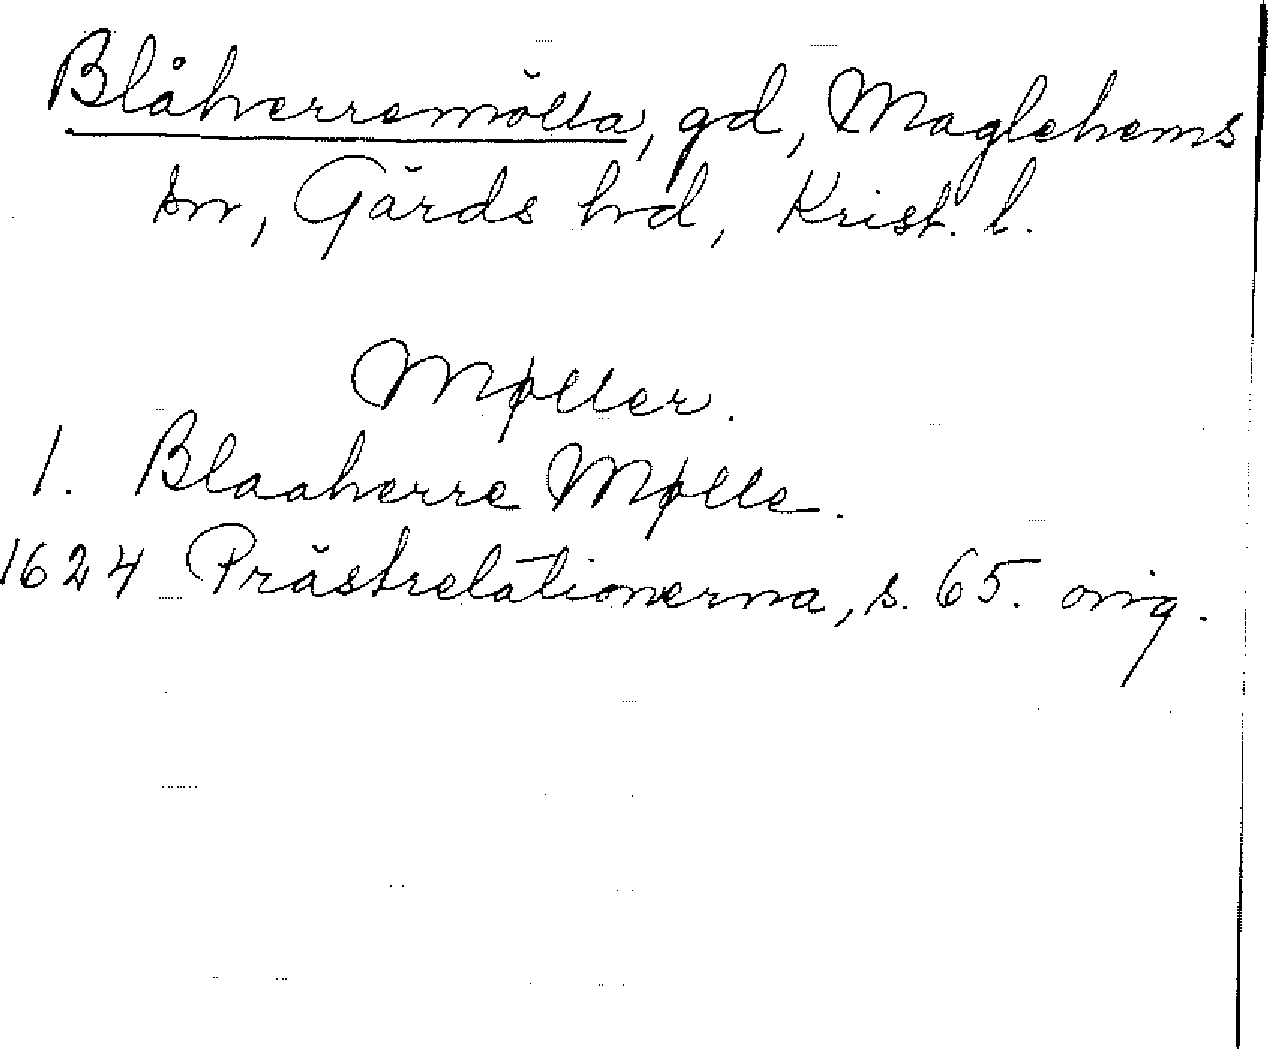 Blåherremölla, gd, Maglehems
sn, Gärds hd, Krist. l.
Møller.
1. Blaaherre Mølle.
1624 Prästrelationerna, s. 65. orig.